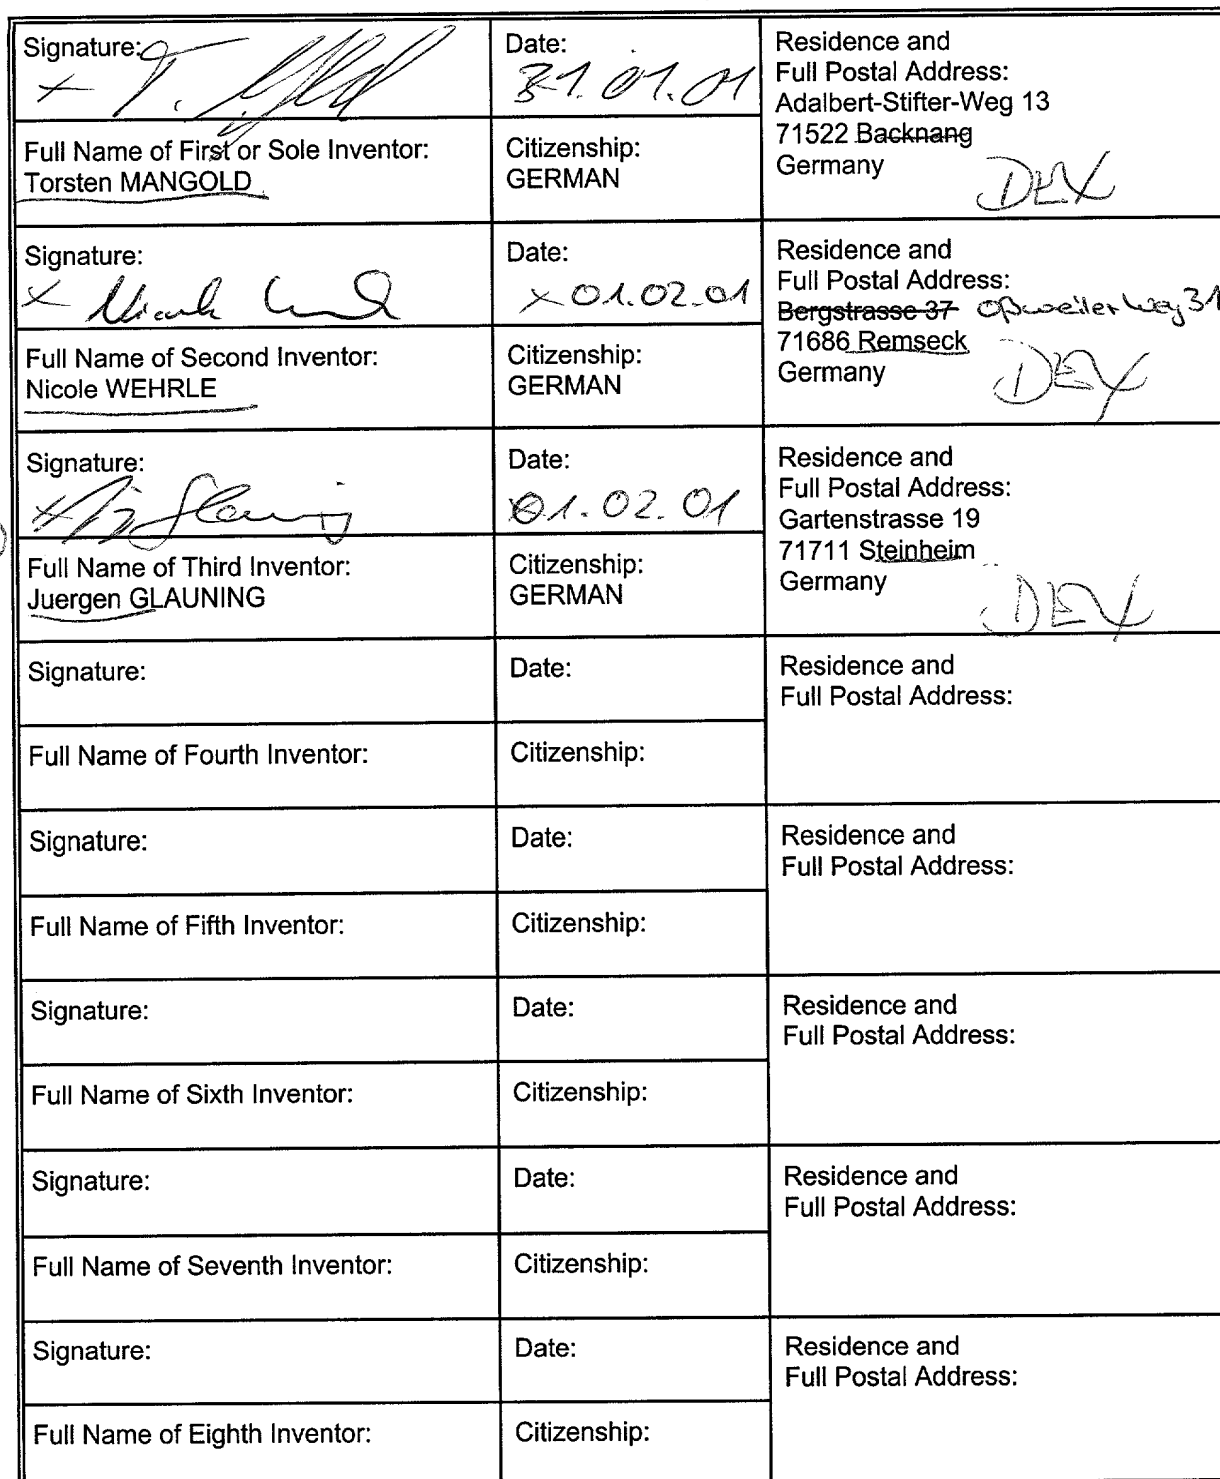 Signature:
Date:
31.01.01
Residence and
Full Postal Address:
Adalbert-Stifter-Weg 13
71522 Backnang
Germany
DEX
Full Name of First or Sole Inventor:
Torsten MANGOLD
Citizenship:
GERMAN
Signature:
Date:
x 01.02.01
Residence and
Full Postal Address:
Bergstrasse 37 Oßweiler Weg 31
71686 Remseck
Germany
DEX
Full Name of Second Inventor:
Nicole WEHRLE
Citizenship:
GERMAN
Signature:
Date:
01.02.01
Residence and
Full Postal Address:
Gartenstrasse 19
71711 Steinheim
Germany
DEX
Full Name of Third Inventor:
Juergen GLAUNING
Citizenship:
GERMAN
Signature:
Date:
Residence and
Full Postal Address:
Full Name of Fourth Inventor:
Citizenship:
Signature:
Date:
Residence and
Full Postal Address:
Full Name of Fifth Inventor:
Citizenship:
Signature:
Date:
Residence and
Full Postal Address:
Full Name of Sixth Inventor:
Citizenship:
Signature:
Date:
Residence and
Full Postal Address:
Full Name of Seventh Inventor:
Citizenship:
Signature:
Date:
Residence and
Full Postal Address:
Full Name of Eighth Inventor:
Citizenship: